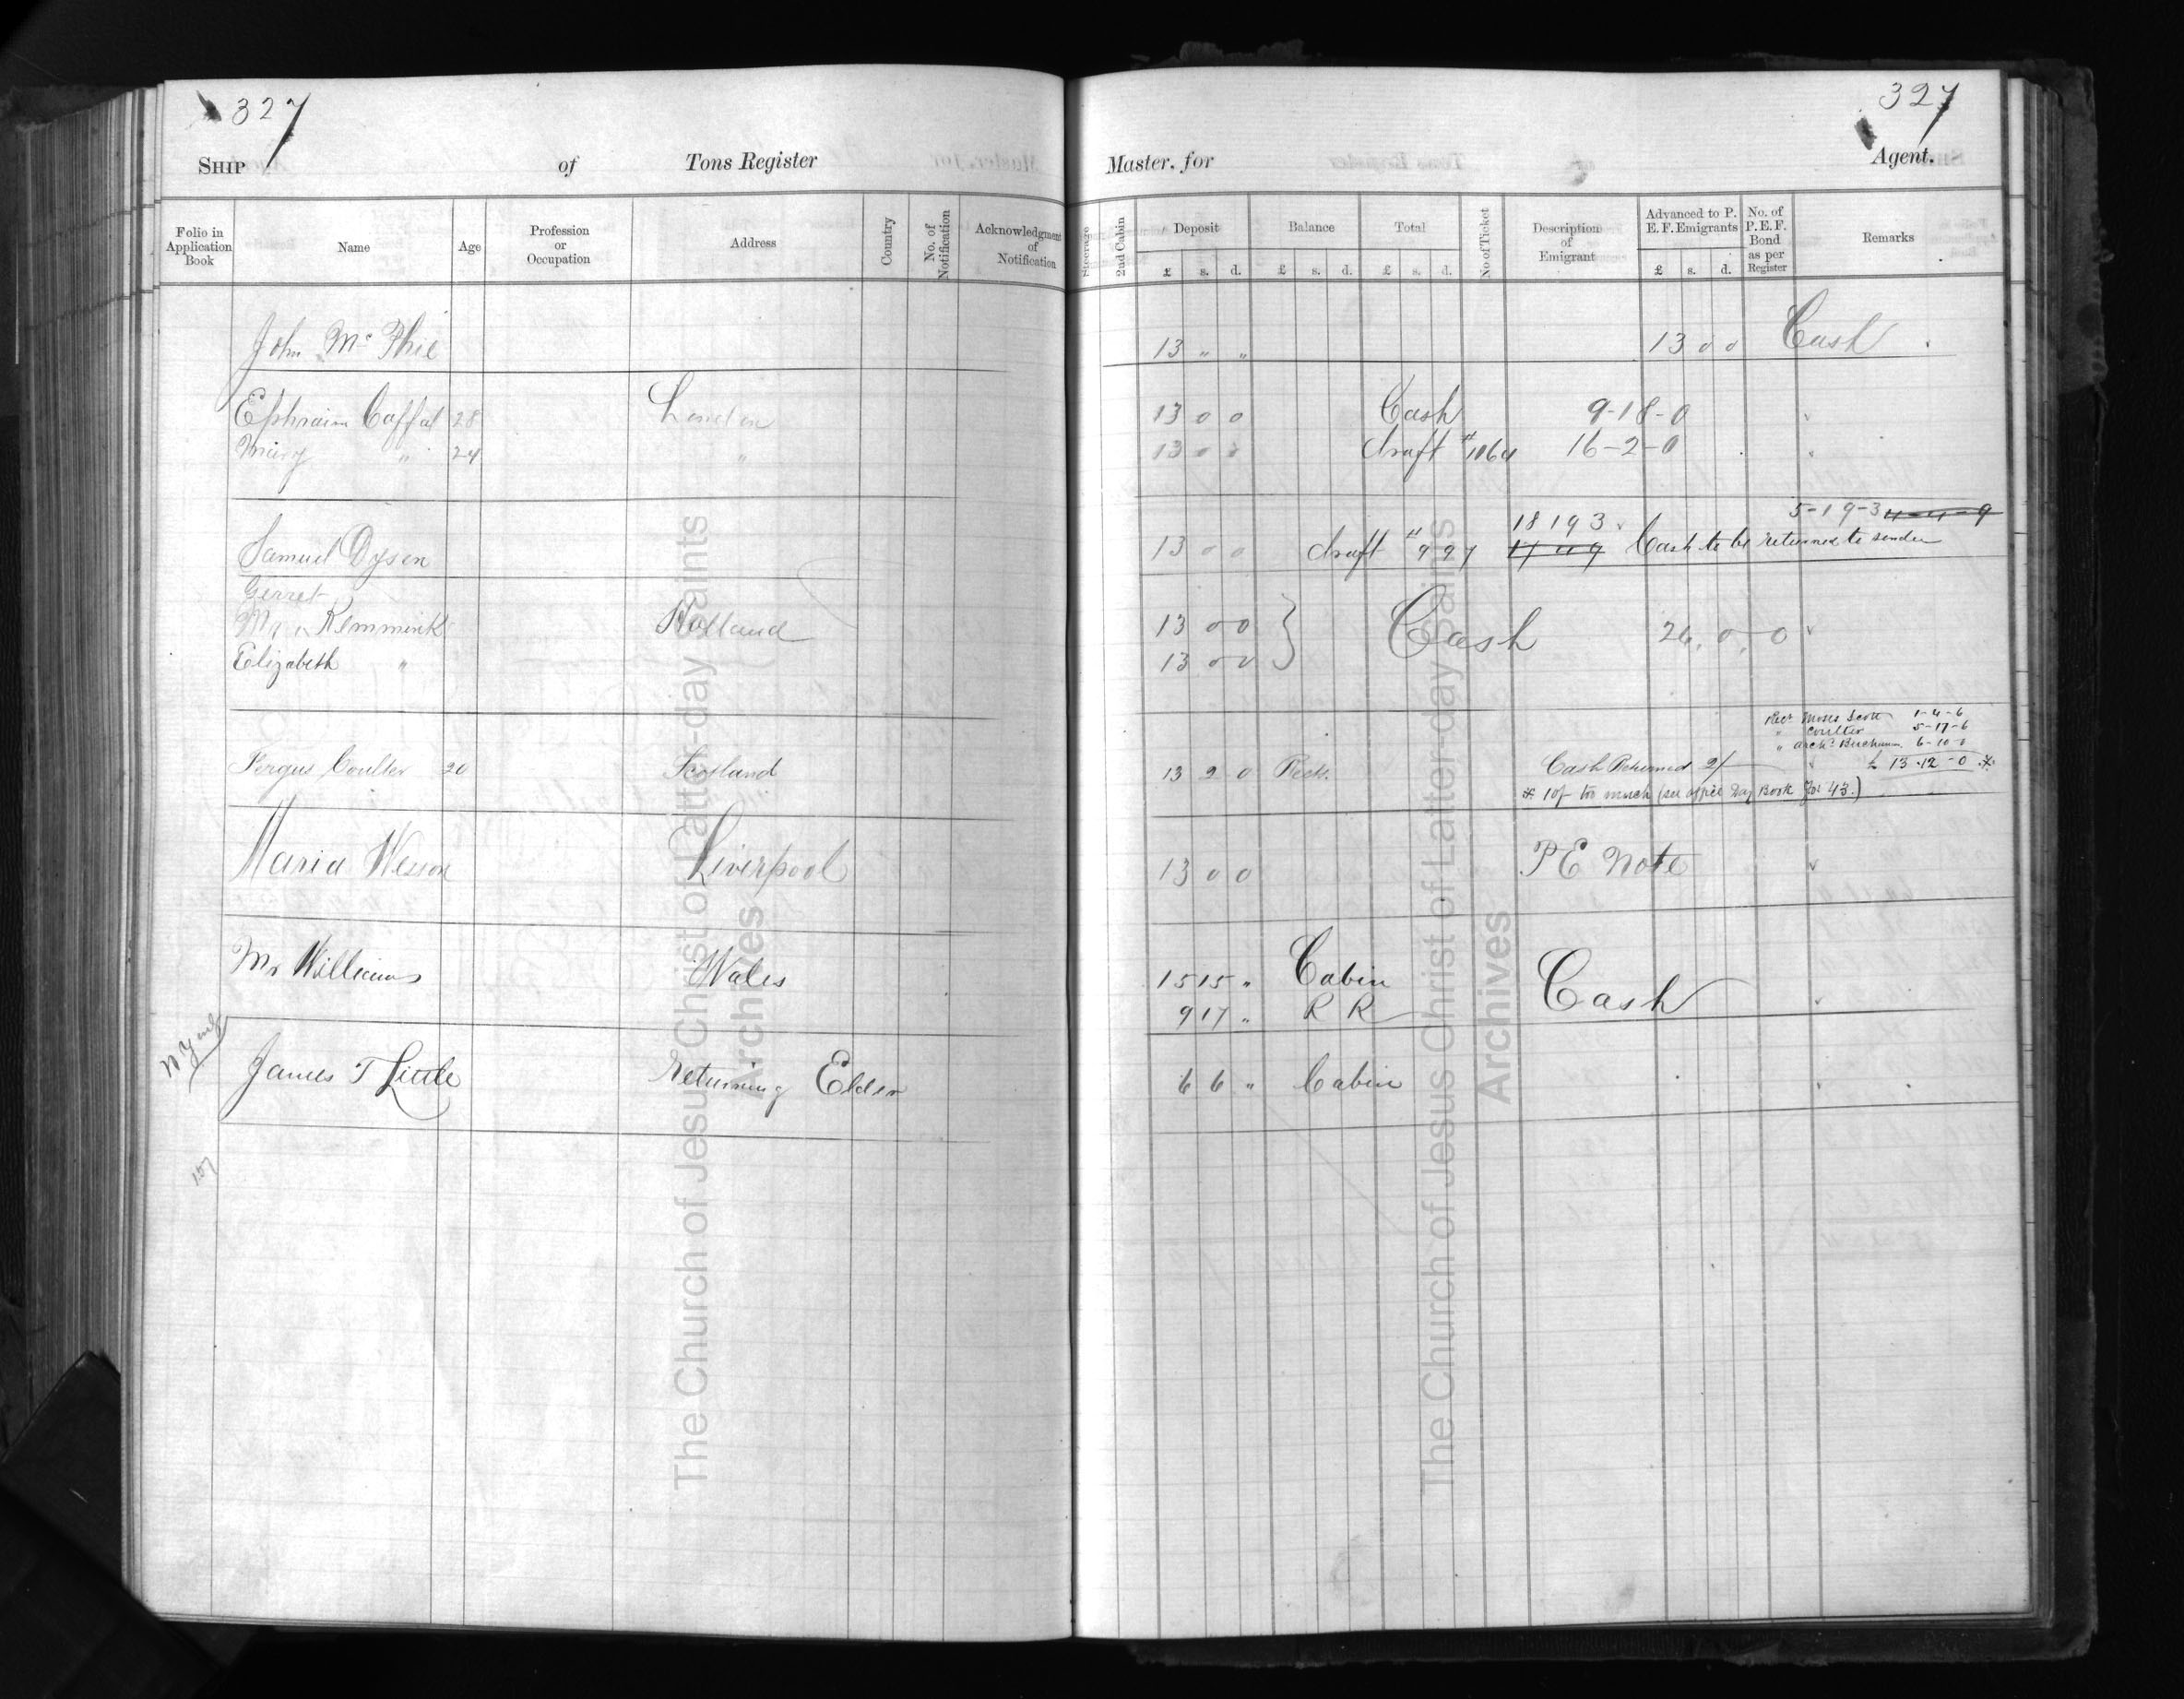 327 327
SHIP of Tons Register Master, for Agent.
Folio in Application Book Name Age Profession or Occupation Address Country No. of Notification Acknowledgment of Notification Steerage 2nd Cabin Deposit £ s. d. Balance £ s. d. Total £ s. d. No of Ticket Description of Emigrant Advanced to P. E. F. Emigrants £ s. d. No. of P. E. F. Bond as per Register Remarks
John Mc Phie 13 " " 13 0 0 Cash
Ephraim Caffal 28 London 13 0 0 Cash 9-18-0
Mary " 24 " 13 0 0 draft #1064 16-2-0
5-19-3
18 19 3
Samuel Dysen 13 0 0 draft " 997 Cash to be returned to sender
Gerret
Kemmink Holland 13 0 0 } Cash 26, 0, 0
Elizabeth " 13 0 0
Moses Scott 1-4-6
" Coulter 5-17-6
" Archd Buchanan 6-10-0
Fergus Coulter 20 Scotland 13 2 0 Recd. Cash Returned 2/ " £ 13-12-0 *
* 10/ too much (see office Day Book Fol 43.)
Maria Wesson Liverpool 13 0 0 P E Note
Mr Williams Wales 15 15 " Cabin Cash
9 17 " R R
N Y only
James T Little returning Elder 6 6 " Cabin
157
The Church of Jesus Christ of Latter-day Saints
Archives
The Church of Jesus Christ of Latter-day Saints
Archives